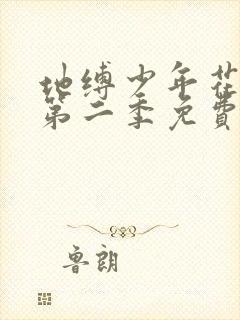 地缚少年花
第二季免費
鲁朗